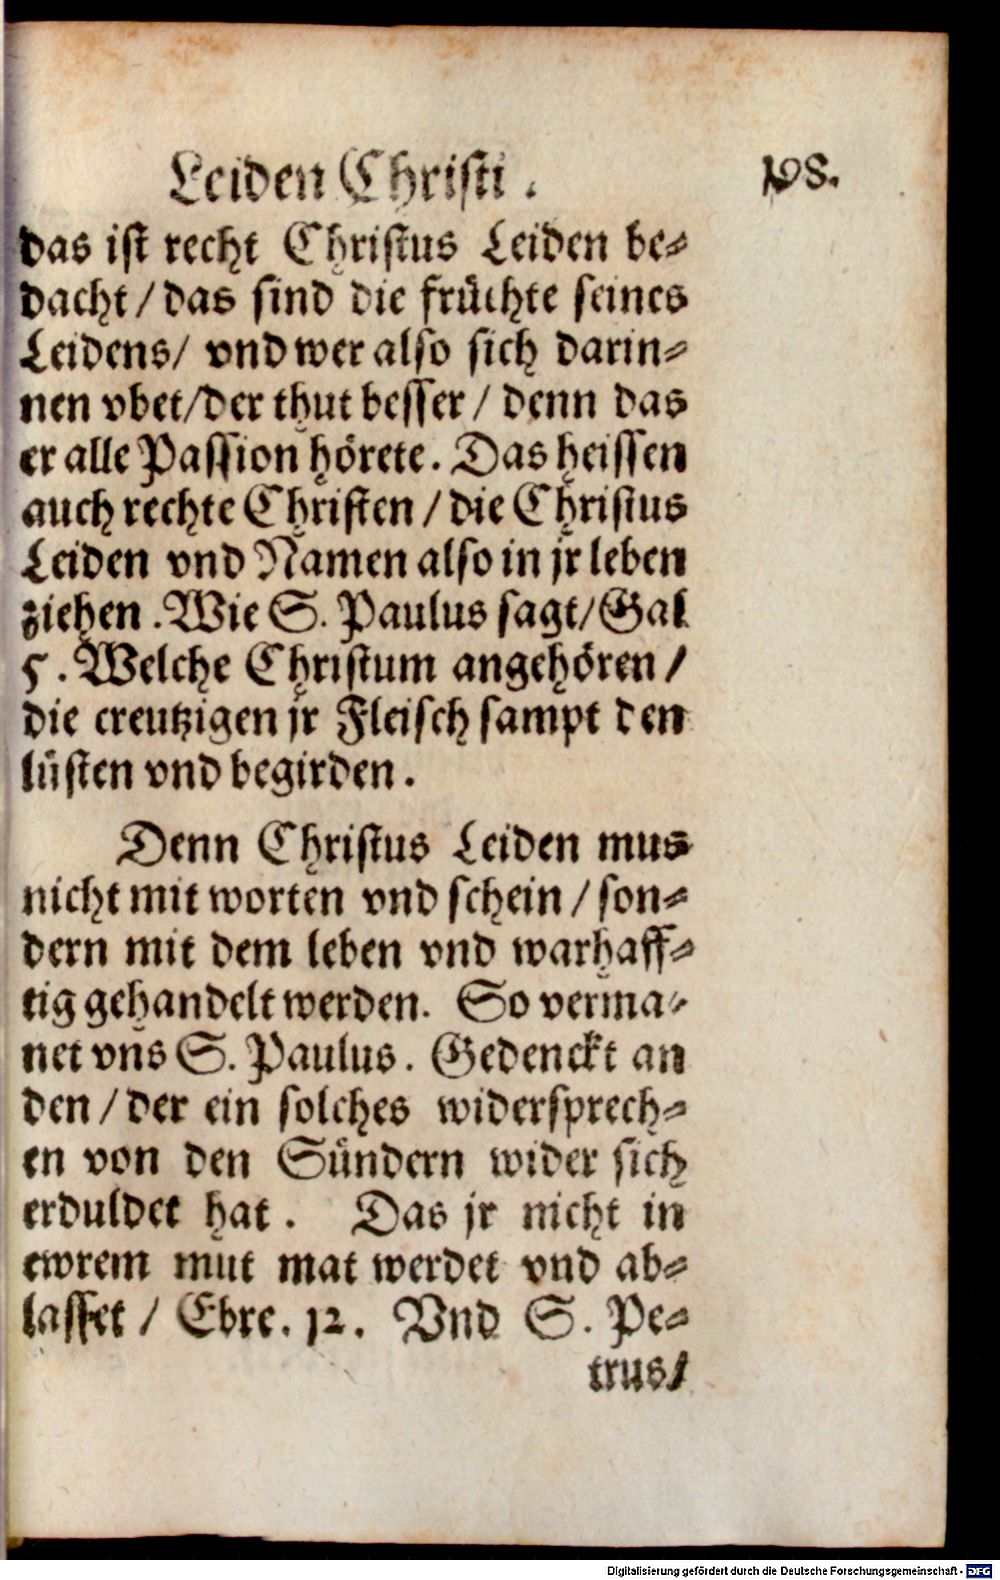 Leiden Christi. 198.
das ist recht Christus Leiden be⸗
dacht / das sind die früchte seines
Leidens / vnd wer also sich darin⸗
nen vbet / der thut besser / denn das
er alle Passion hörete. Das heissen
auch rechte Christen / die Christus
Leiden vnd Namen also in jr leben
ziehen. Wie S. Paulus sagt / Gal
5. Welche Christum angehören /
die creutzigen jr Fleisch sampt den
lüsten vnd begirden.
Denn Christus Leiden mus
nicht mit worten vnd schein / son⸗
dern mit dem leben vnd warhaff⸗
tig gehandelt werden. So verma⸗
net vns S. Paulus. Gedenckt an
den / der ein solches widersprech⸗
en von den Sündern wider sich
erduldet hat. Das jr nicht in
ewrem mut mat werdet vnd ab⸗
lasset / Ebre. 12. Vnd S. Pe⸗
trus /
Digitalisierung gefördert durch die Deutsche Forschungsgemeinschaft - DFG